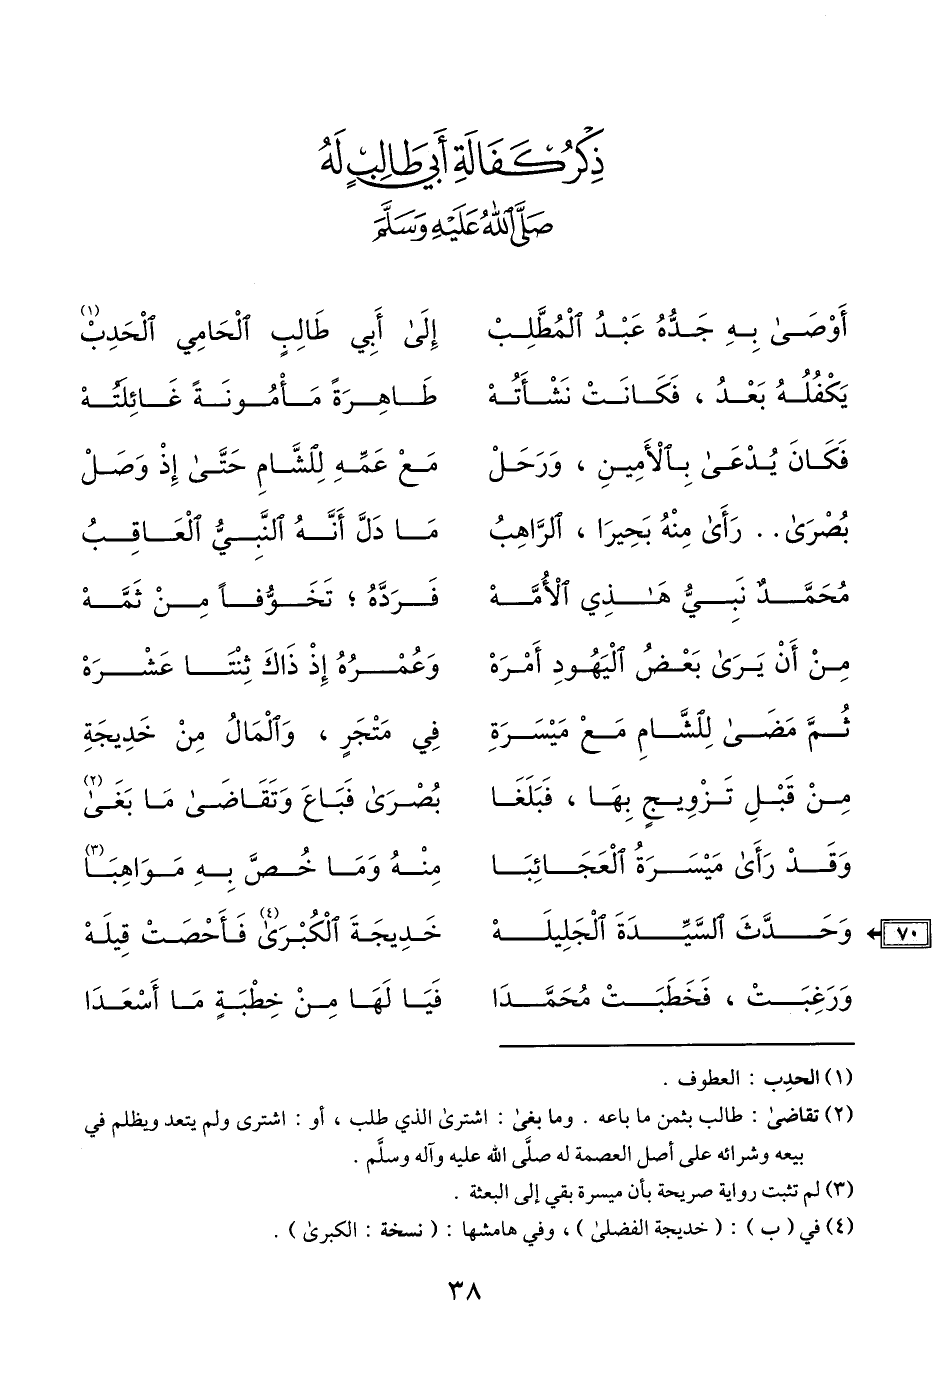 ذِكْرُ كَفَالَةِ أَبِي طَالِبٍ لَهُ
صَلَّى ٱللهُ عَلَيْهِ وَسَلَّمَ
أَوْصَىٰ بِهِ جَدُّهُ عَبْدُ ٱلْمُطَّلِبْ إِلَىٰ أَبِي طَالِبٍ ٱلْحَامِي ٱلْحَدِبْ(١)
يَكْفُلُهُ بَعْدُ ، فَكَانَتْ نَشْأَتُهْ طَاهِرَةً مَأْمُونَةً غَائِلَتُهْ
فَكَانَ يُدْعَىٰ بِٱلْأَمِينِ ، وَرَحَلْ مَعْ عَمِّهِ لِلشَّامِ حَتَّىٰ إِذْ وَصَلْ
بُصْرَىٰ.. رَأَىٰ مِنْهُ بَحِيرَا ، ٱلرَّاهِبُ مَا دَلَّ أَنَّهُ ٱلنَّبِيُّ ٱلْعَاقِبُ
مُحَمَّدٌ نَبِيُّ هَـٰذِي ٱلْأُمَّهْ فَرَدَّهُ ؛ تَخَوُّفاً مِنْ ثَمَّهْ
مِنْ أَنْ يَرَىٰ بَعْضُ ٱلْيَهُودِ أَمْرَهْ وَعُمْرُهُ إِذْ ذَاكَ ثِنْتَا عَشْرَهْ
ثُمَّ مَضَىٰ لِلشَّامِ مَعْ مَيْسَرَةِ فِي مَتْجَرٍ ، وَٱلْمَالُ مِنْ خَدِيجَةِ
مِنْ قَبْلِ تَزْوِيجٍ بِهَا ، فَبَلَغَا بُصْرَىٰ فَبَاعَ وَتَقَاضَىٰ مَا بَغَىٰ(٢)
وَقَدْ رَأَىٰ مَيْسَرَةُ ٱلْعَجَائِبَا مِنْهُ وَمَا خُصَّ بِهِ مَوَاهِبَا(٣)
٧٠ وَحَدَّثَ ٱلسَّيِّدَةَ ٱلْجَلِيلَهْ خَدِيجَةَ ٱلْكُبْرَىٰ(٤) فَأَحْصَتْ قِيلَهْ
وَرَغِبَتْ ، فَخَطَبَتْ مُحَمَّدَا فَيَا لَهَا مِنْ خِطْبَةٍ مَا أَسْعَدَا
(١) الحدِب : العطوف .
(٢) تقاضىٰ : طالب بثمن ما باعه . وما بغىٰ : اشترىٰ الذي طلب ، أو : اشترى ولم يتعد ويظلم في
بيعه وشرائه على أصل العصمة له صلَّى الله عليه وآله وسلَّم .
(٣) لم تثبت رواية صريحة بأن ميسرة بقي إلى البعثة .
(٤) في ( ب ) : ( خديجة الفضلىٰ ) ، وفي هامشها : ( نسخة : الكبرىٰ ) .
٣٨